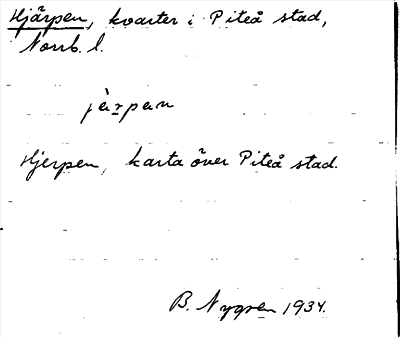 Hjärpen, kvarter i Piteå stad,
Norrb. l.
jàrpan
Hjerpen, karta över Piteå stad.
B. Nygren 1934.